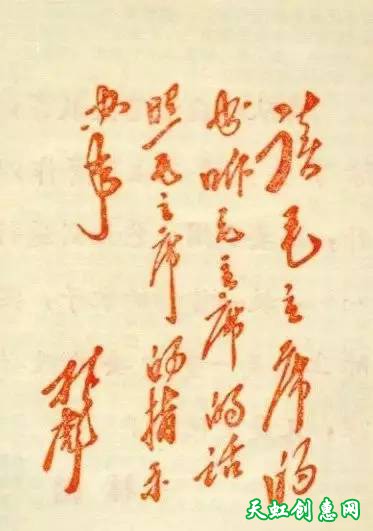 读毛主席的
书听毛主席的话
照毛主席的指示
办事
林彪
天虹创惠网